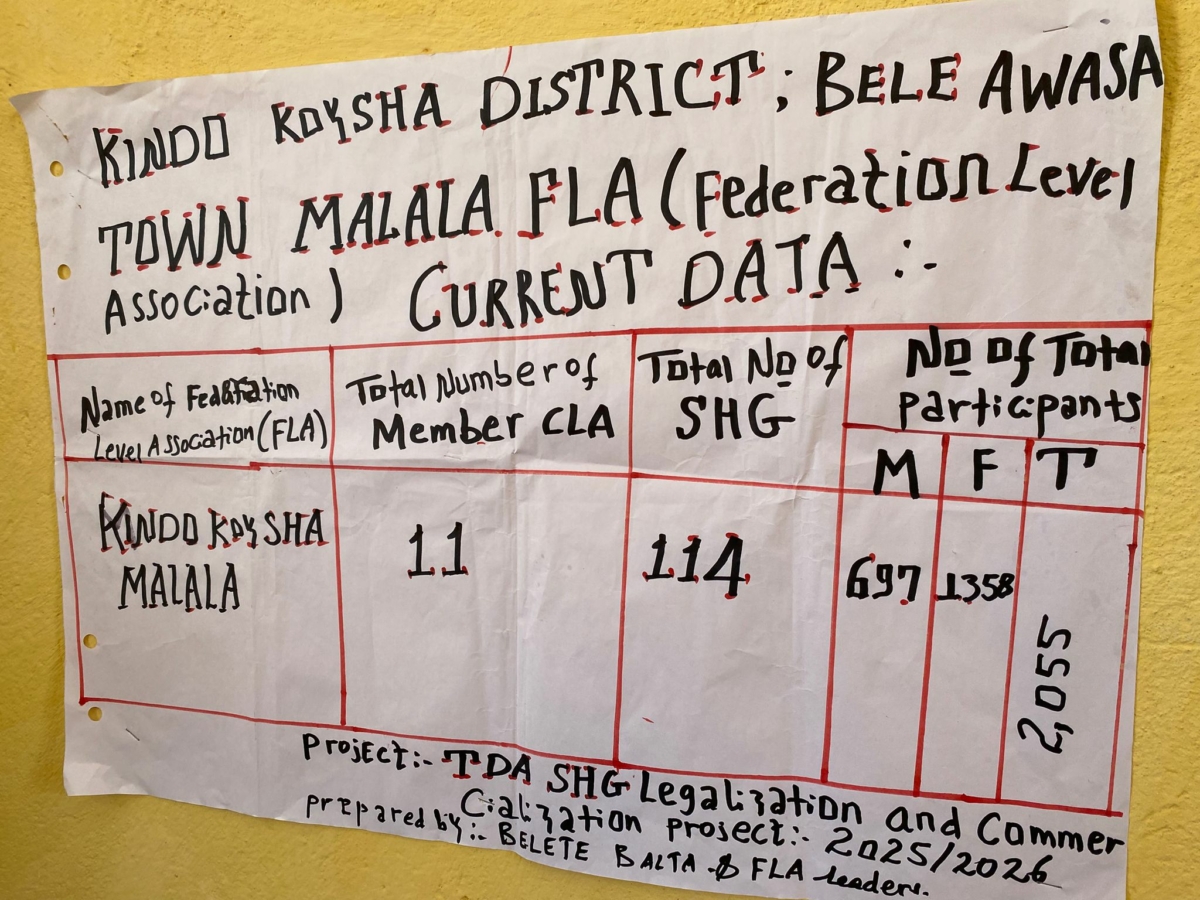 KINDO KOYSHA DISTRICT ; BELE AWASA
TOWN MALALA FLA (Federation Level
Association) CURRENT DATA :-
Name of Fedaration
Level Assocation (FLA)
Total Number of
Member CLA
Total No of
SHG
No of Total
participants
M F T
KINDO KOYSHA
MALALA
11
114
697
1358
2,055
project:- TDA SHG Legalization and Commer
Cialization project:- 2025/2026
prepared by:- BELETE BALTA & FLA leaders.